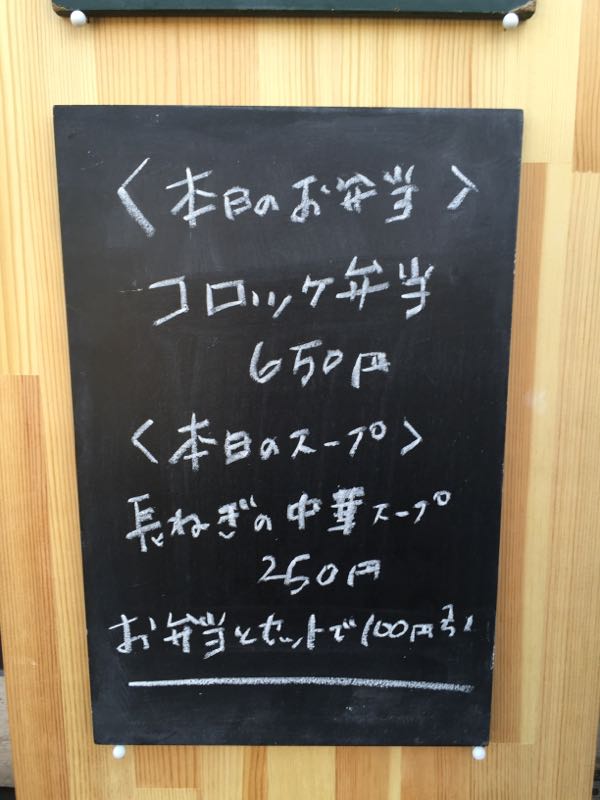 〈本日のお弁当〉
コロッケ弁当
650円
〈本日のスープ〉
長ねぎの中華スープ
250円
お弁当とセットで100円引